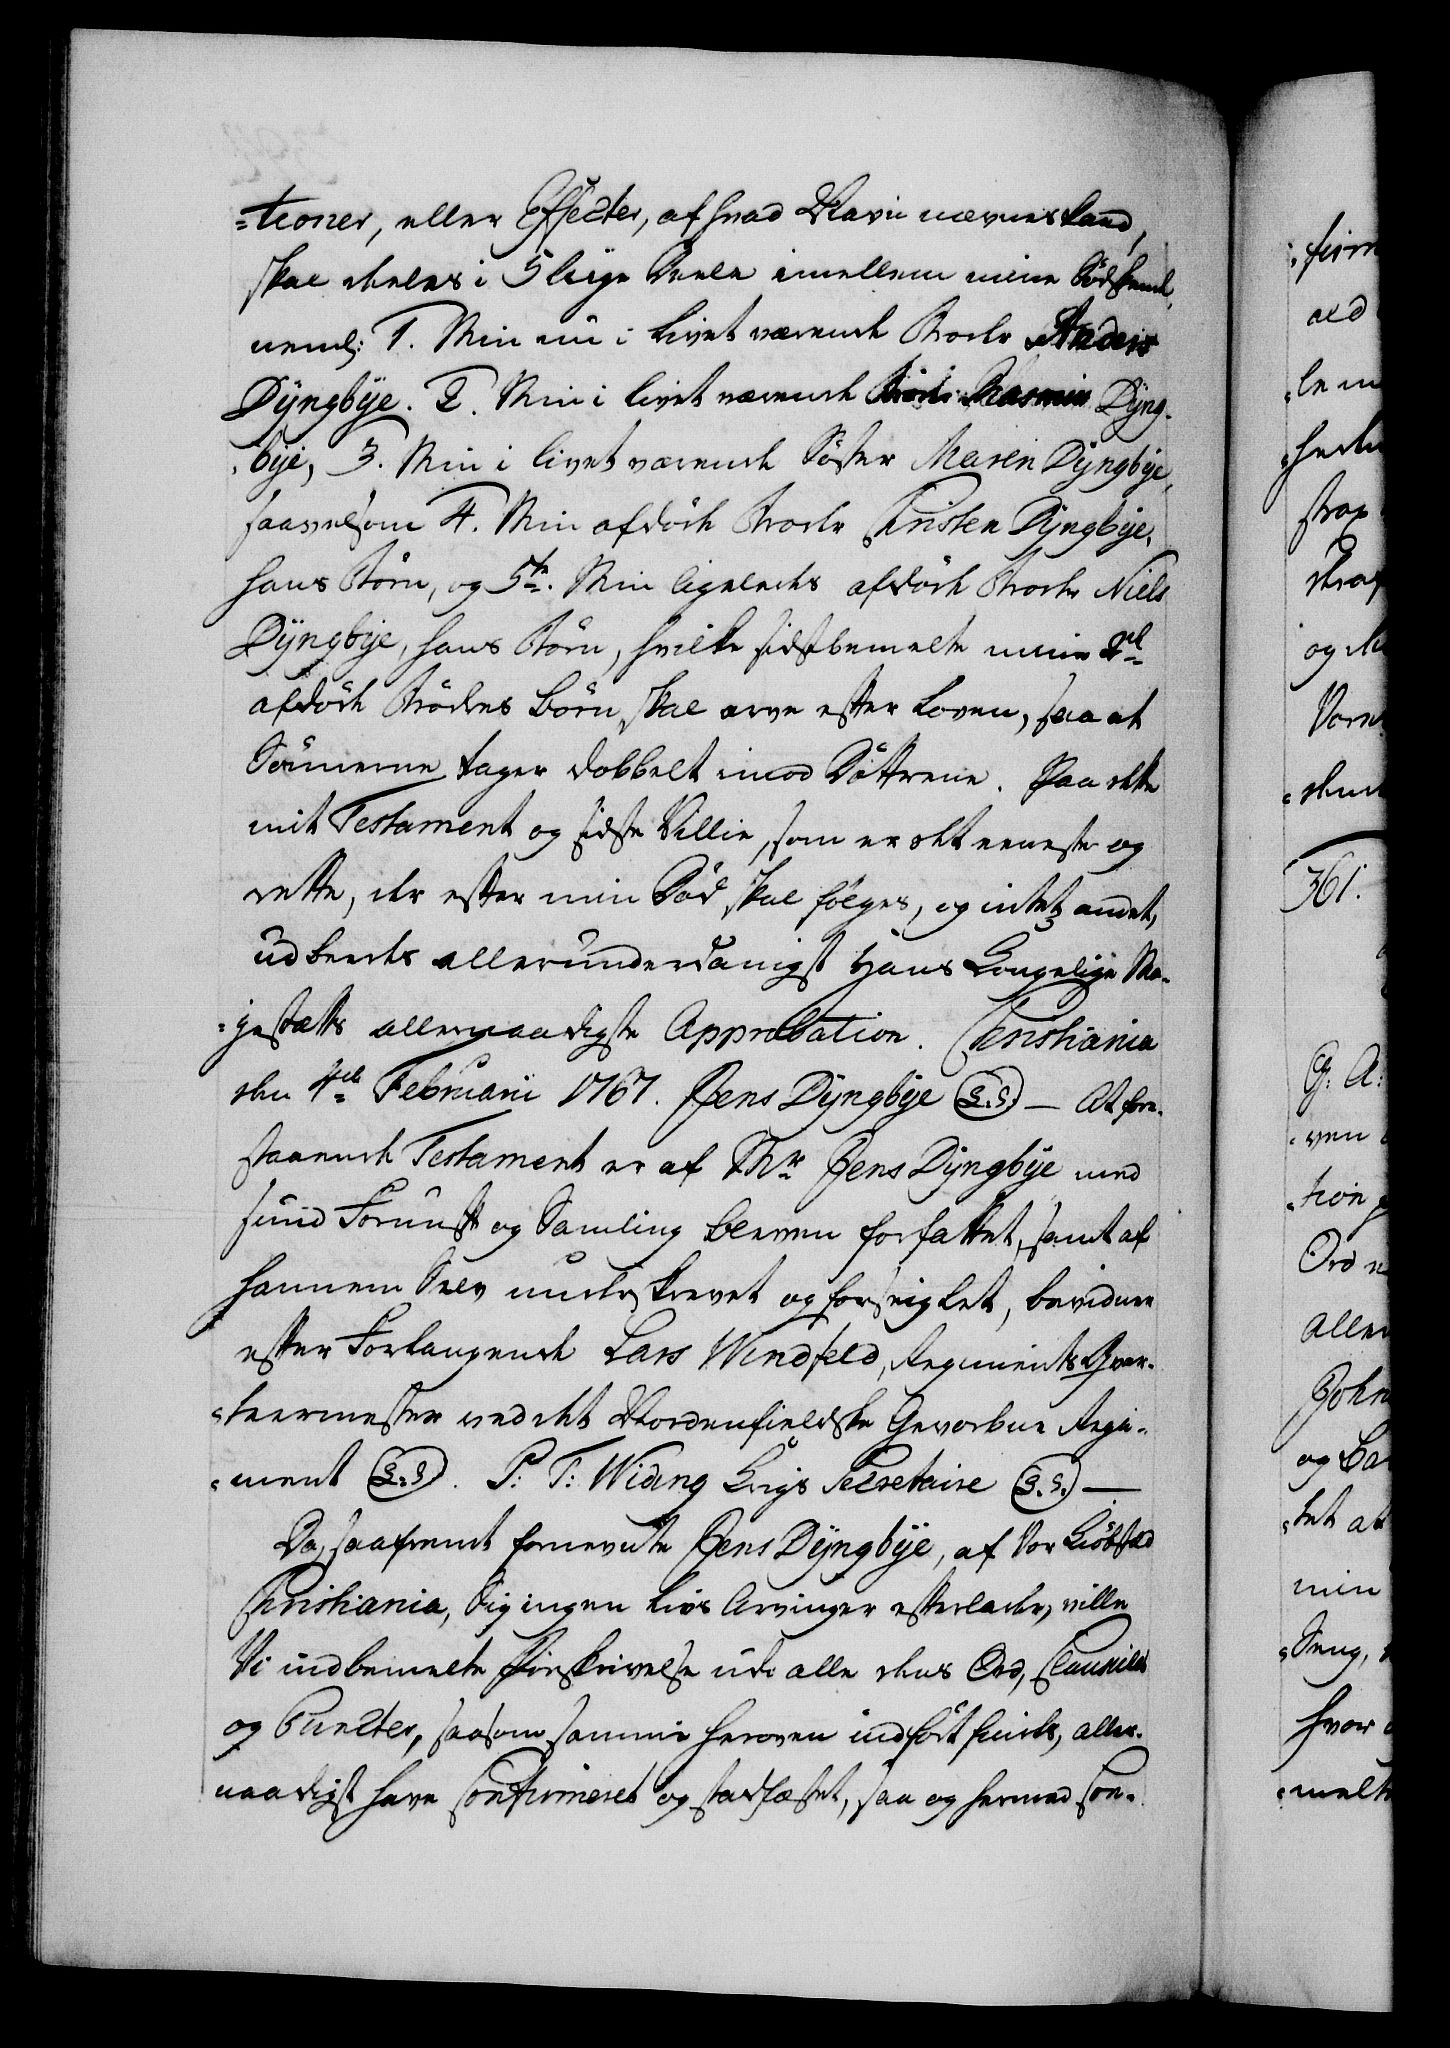 =tioner, eller Effecter, af hvad Navn nævnes kand,
skal deeles i 5 liige Deele imellem mine Sødskende,
neml: 1. Min nu i Livet værende Broder Anders
Dÿngbÿe. 2. Min i livet værende Broder Rasmus Dÿng-
-bÿe, 3. Min i livet værende Søster Maren Dÿngbÿe,
saavelsom 4. Min afdøde Broder Christen Dÿngbÿe,
hans Børn, og 5te. Min ligeledes afdøde Broder Niels
Dÿngbÿe, hans Børn, hvilke sidstbemelte mine 2de
afdøde Brødres Børn skal arve efter Loven, saa at
Sønnerne tager dobbelt imod Døttrene. Paa dette
mit Testament og sidste Villie, som er det eeneste og
rette, der efter min Død skal følges, og intet andet,
udbeedes allerunderdanigst Hans Kongelige Ma-
-jestæts allernaadigste Approbation. Christiania
den 4de Februarii 1767. Jens Dÿngbÿe (L.S.) — At fore-
staaende Testament er af Mr Jens Dÿngbÿe med
sund Fornuft og Samling bleven forfattet, samt af
hannem Selv underskrevet og forseiglet, bevidner
efter Forlangende Lars Windfeld, Regiments Qvar-
-teermester ved det Nordenfieldske Gevorbne Regi-
-ment (L.S.). P: T: Widing Krigs Secretaire (L.S.) —
Da, saafremt fornevnte Jens Dÿngbÿe, af Vor Kiøbstæd
Christiania, Sig ingen Livs Arvinger efterlader, ville
Vi indbemelte Forskrivelse udi alle dens Ord, Clausuler
og Puncter, saasom samme heroven indført findes, aller-
naadigst have Confirmeret og stadfæstet, saa og hermed Con-
361.